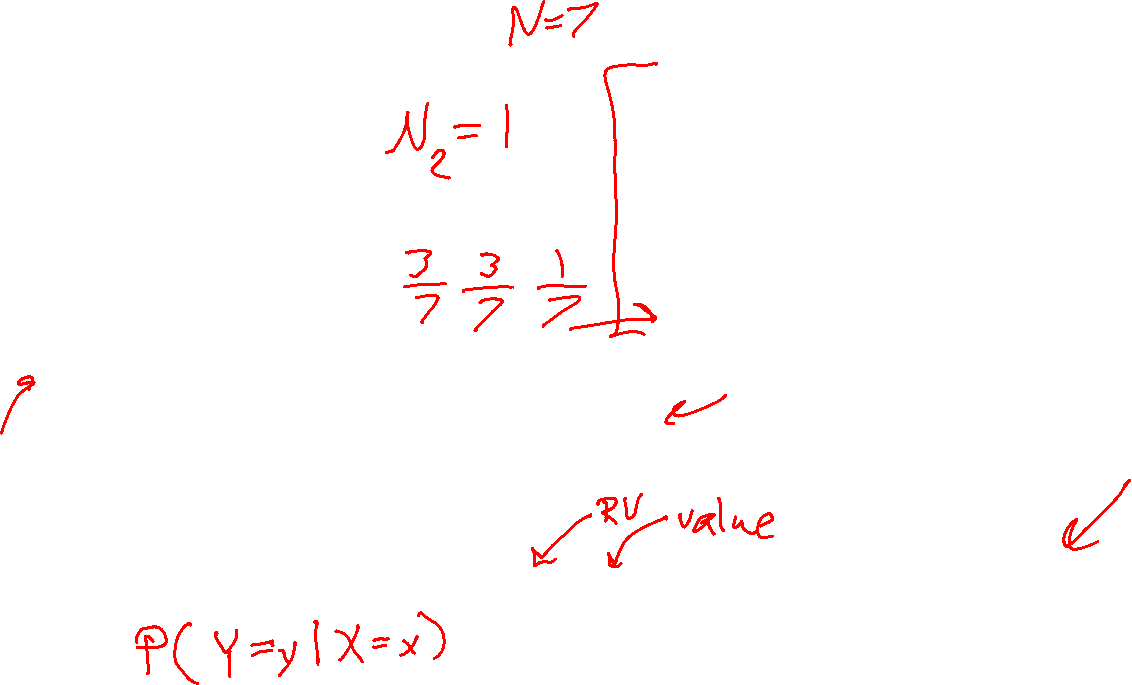 N=7
N₂ = 1
3/7 3/7 1/7
RV value
P(Y=y|X=x)